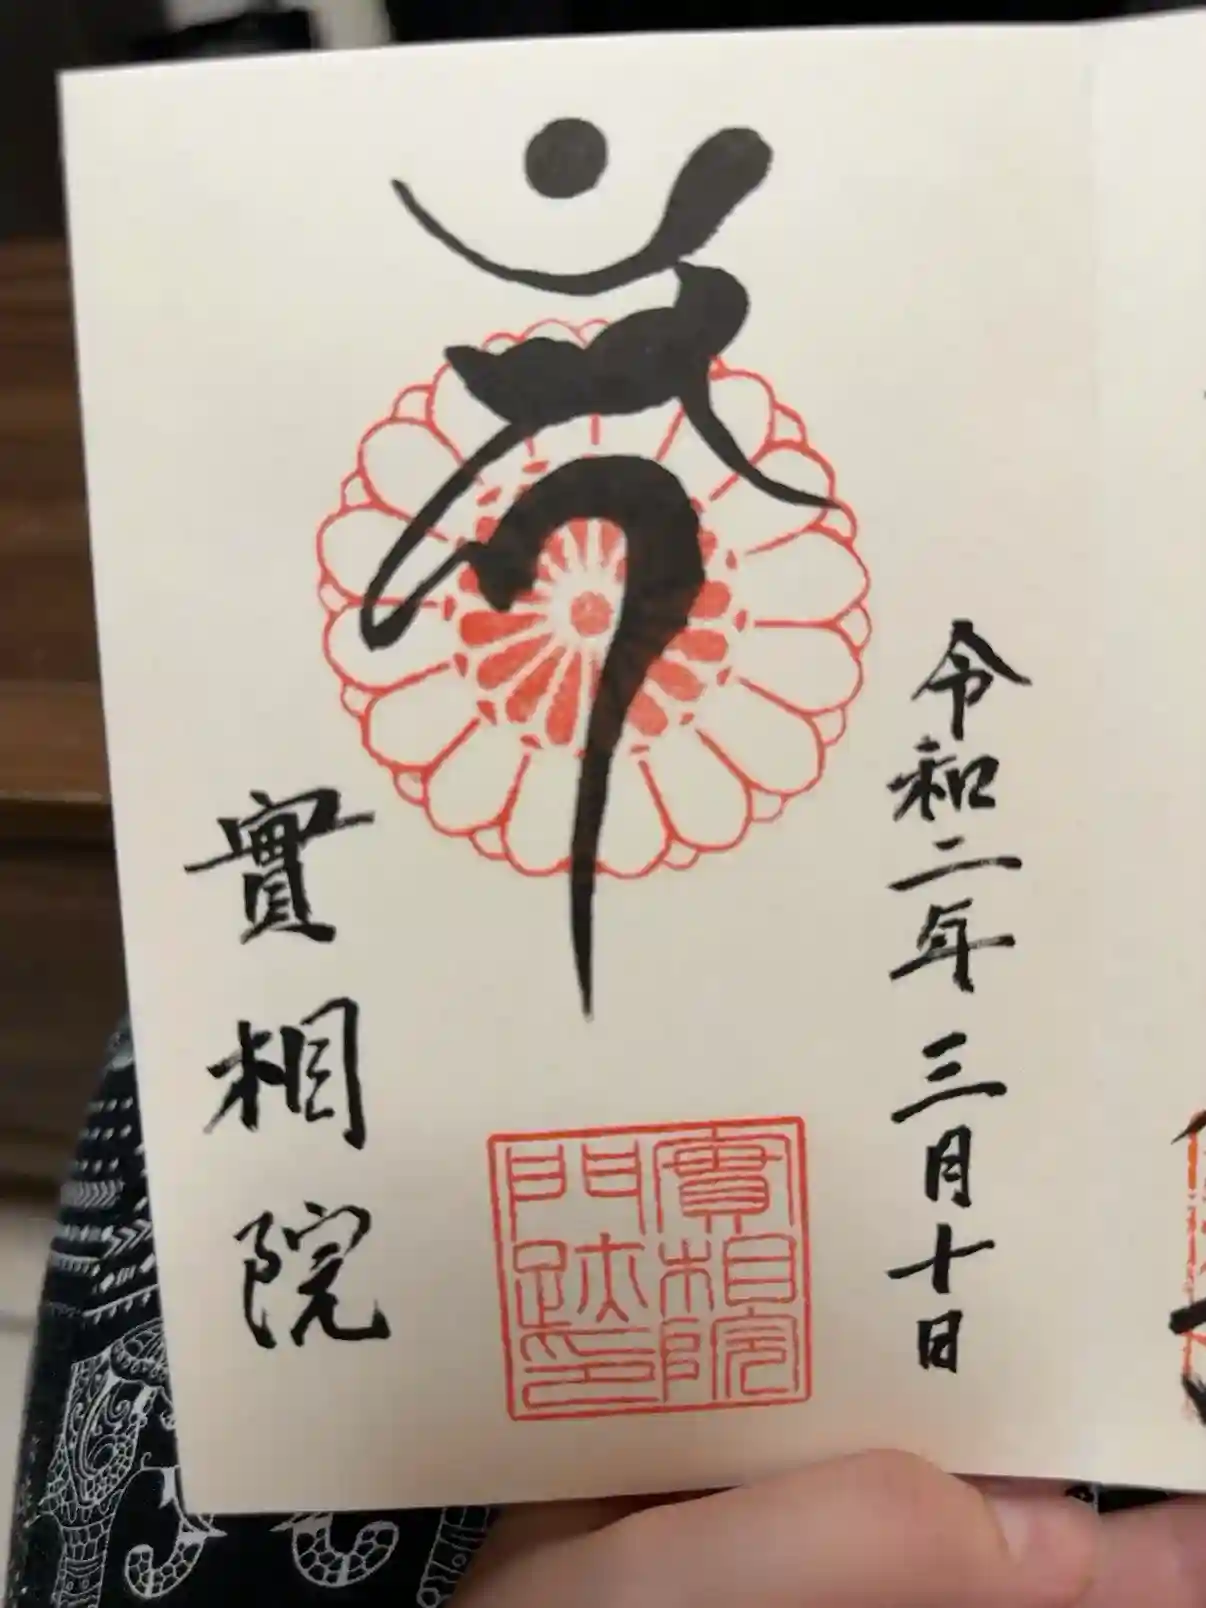 令和二年 三月十日
實相院
實相院
門跡印